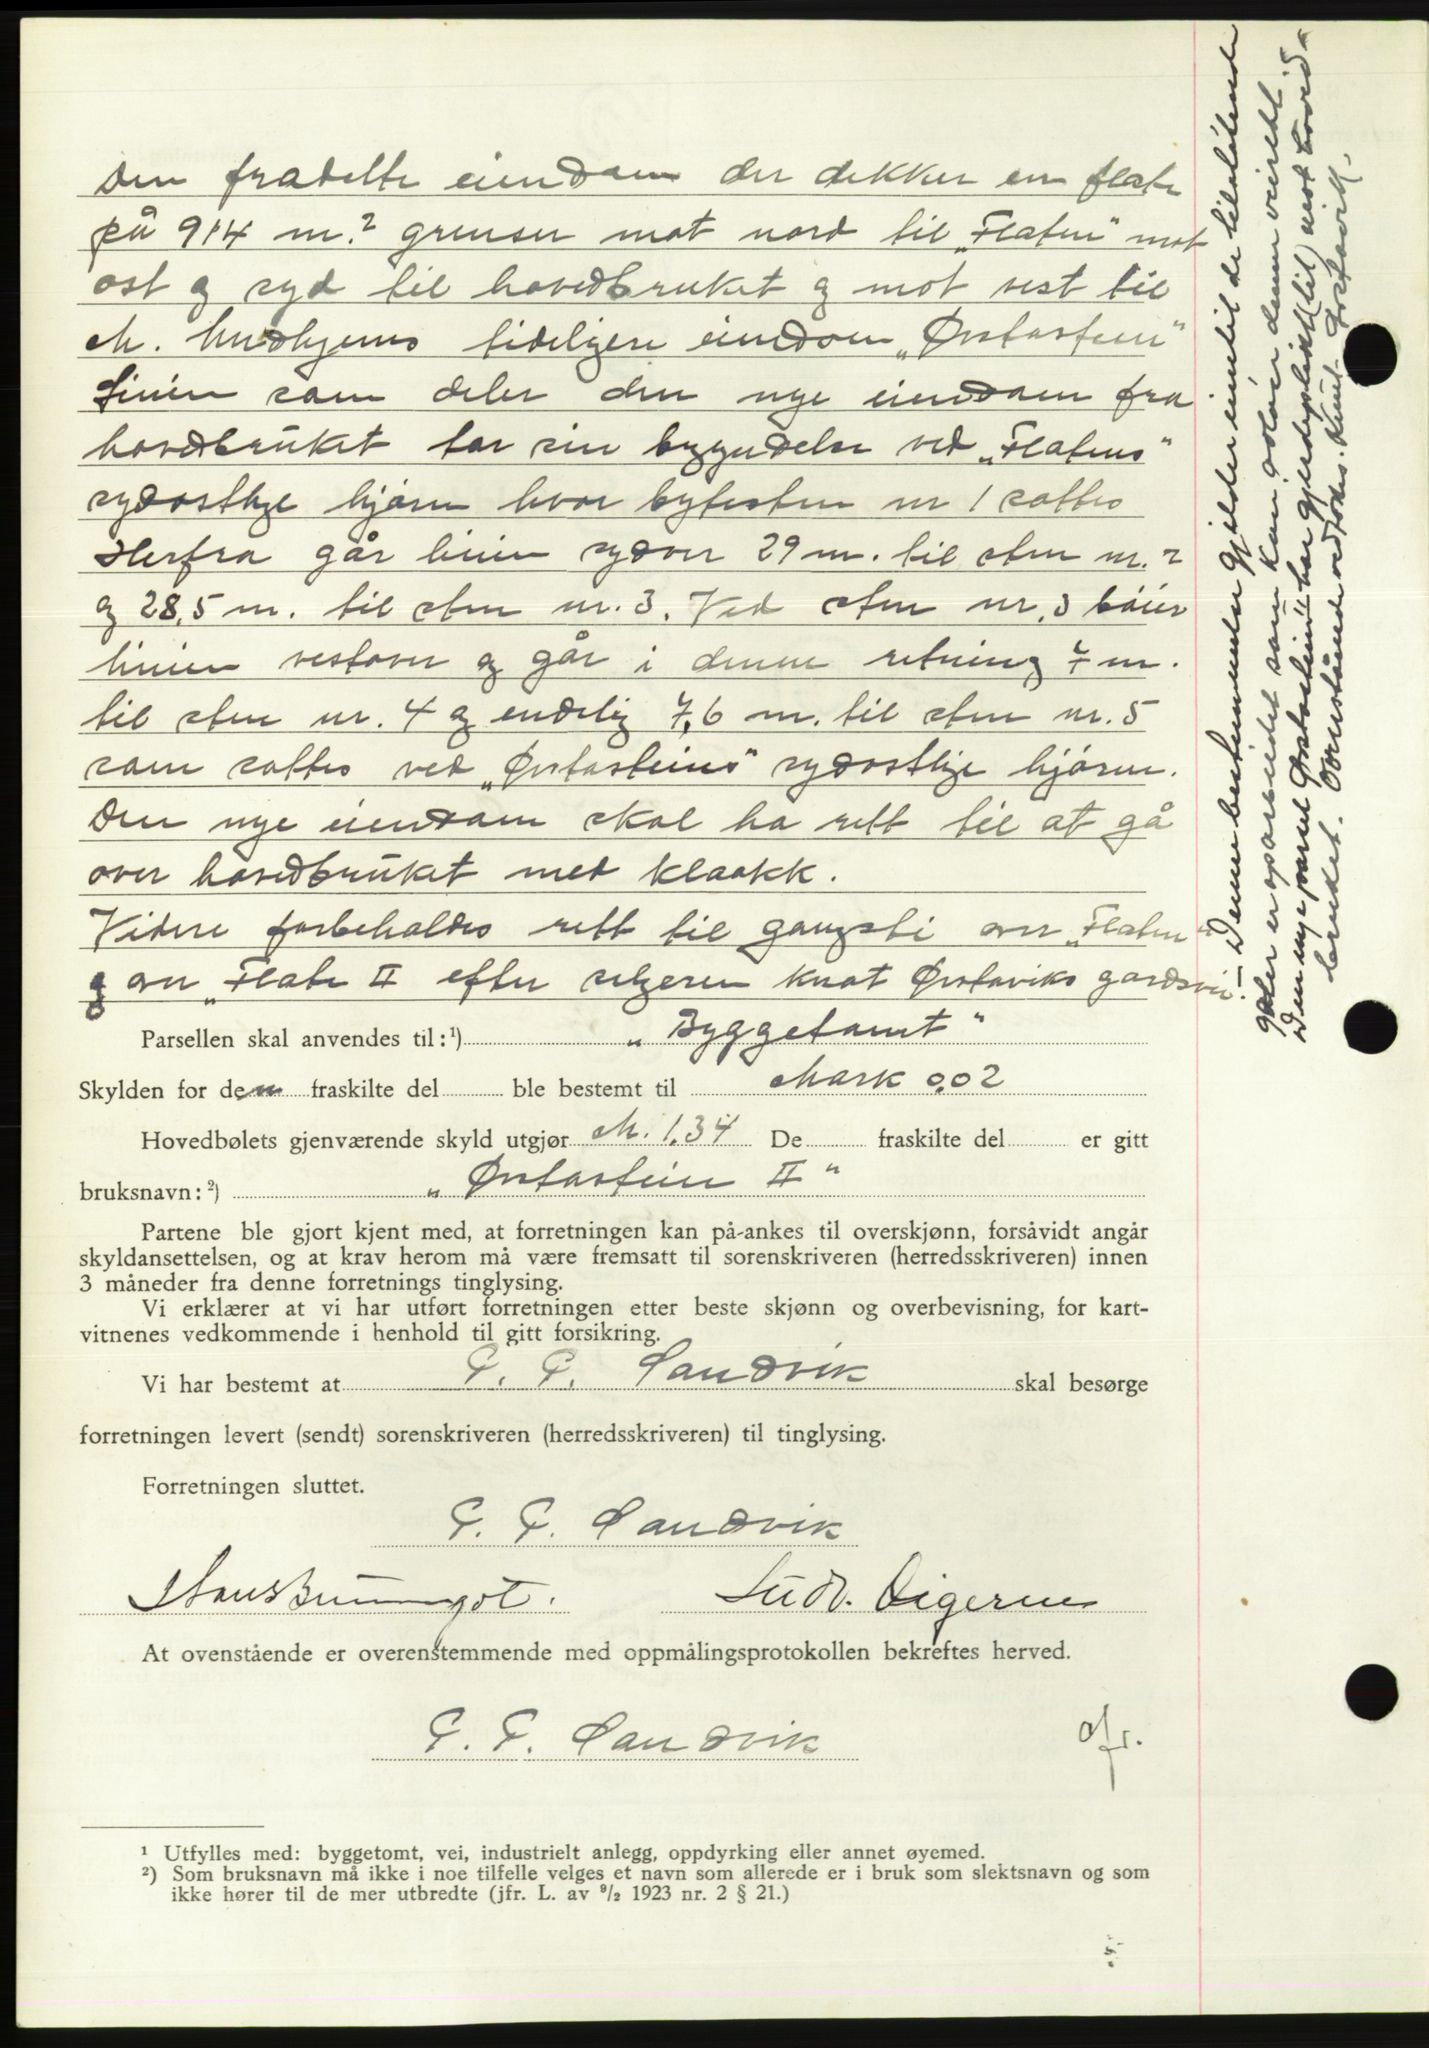 Den fradelte eiendom der dekker en flate
på 914 m.² grenser mot nord til „Flaten" mot
ost og syd til hovedbruket og mot vest til
M. tidligere eiendom „Ørstastein"
Linien som deler den nye eiendom fra
hovedbruket tar sin begyndelse ved „Flatens"
sydostlige hjörne hvor bytesten nr 1 sattes
Herfra går linien sydover 29 m. til sten nr. 2
og 28,5 m. til sten nr. 3. Ved sten nr. 3 böier
linien vestover og går i denne retning 7 m.
til sten nr. 4 og endelig 7,6 m. til sten nr. 5
som sattes ved „Ørstasteins" sydostlige hjörne.
Den nye eiendom skal ha rett til at gå
over hovedbruket med kloakk.
Videre forbeholdes rett til gangsti over „Flaten"
og over „Flate II efter selgeren Knut Ørstaviks gardsvei.
Parsellen skal anvendes til:¹) „Byggetomt"
Skylden for den fraskilte del ble bestemt til Mark 0,02
Hovedbølets gjenværende skyld utgjør M. 1,34 De fraskilte del er gitt
bruksnavn:²) „Ørstastein II"
Partene ble gjort kjent med, at forretningen kan på-ankes til overskjønn, forsåvidt angår
skyldansettelsen, og at krav herom må være fremsatt til sorenskriveren (herredsskriveren) innen
3 måneder fra denne forretnings tinglysing.
Vi erklærer at vi har utført forretningen etter beste skjønn og overbevisning, for kart-
vitnenes vedkommende i henhold til gitt forsikring.
Vi har bestemt at P. P. Sandvik skal besørge
forretningen levert (sendt) sorenskriveren (herredsskriveren) til tinglysing.
Forretningen sluttet.
P. P. Sandvik
Ludv. Digernes
At ovenstående er overenstemmende med oppmålingsprotokollen bekreftes herved.
P. P. Sandvik
¹ Utfylles med: byggetomt, vei, industrielt anlegg, oppdyrking eller annet øyemed.
²) Som bruksnavn må ikke i noe tilfelle velges et navn som allerede er i bruk som slektsnavn og som
ikke hører til de mer utbredte (jfr. L. av ⁹/₂ 1923 nr. 2 § 21.)
Denne bestemmelse gjelder inntil de tilstötende
er oparbeidet som kan denne veirett.
Den nye parsel Ørstastein II har gjerdeplikt mot hoved-
bruket. Ovenstående vedtokes. Knut Ørstavik.